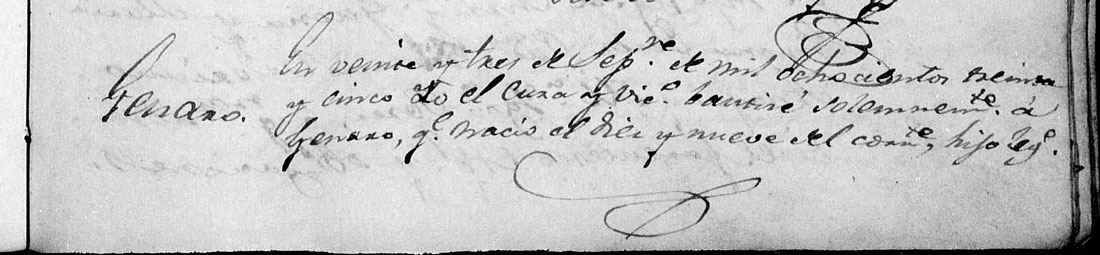 Genaro.
En veinte y tres de Sepᵣᵉ. de mil ochocientos treinta
y cinco Yo el Cura y Vicº. bautisé solemnemᵗᵉ. á
Genaro, qᵉ. nació el diez y nueve del corrᵗᵉ, hijo legº.